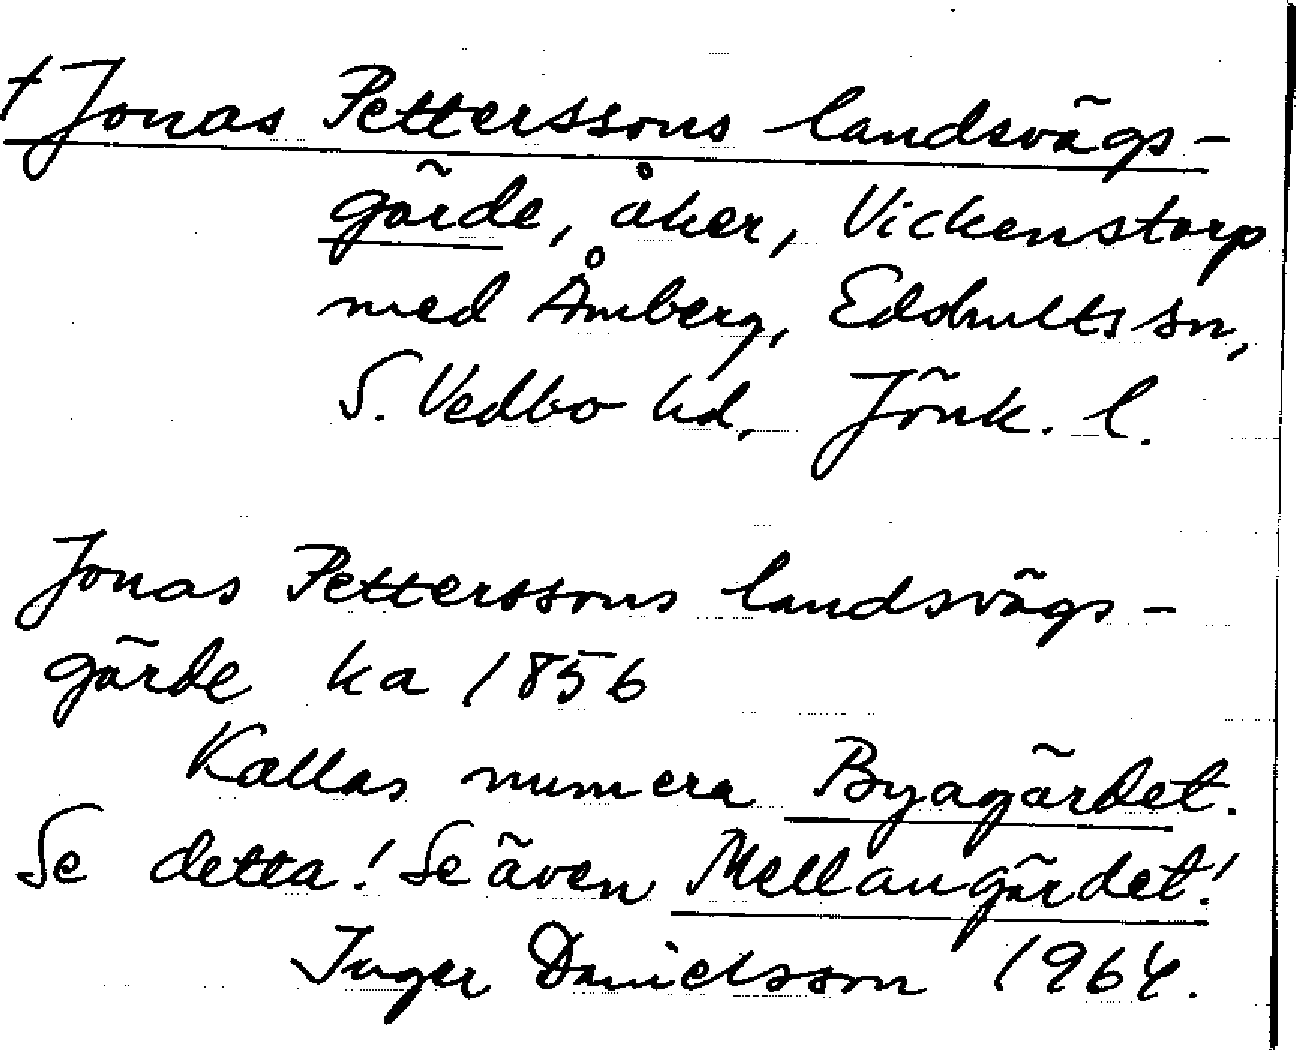 † Jonas Petterssons landsvägs-
gärde, åker, Vickenstorp
med Åmberg, Edshults sn,
S. Vedbo hd, Jönk. l.
Jonas Petterssons landsvägs-
gärde ka 1856
Kallas numera Byagärdet.
Se detta! Se även Mellangärdet!
Inger Danielsson 1964.